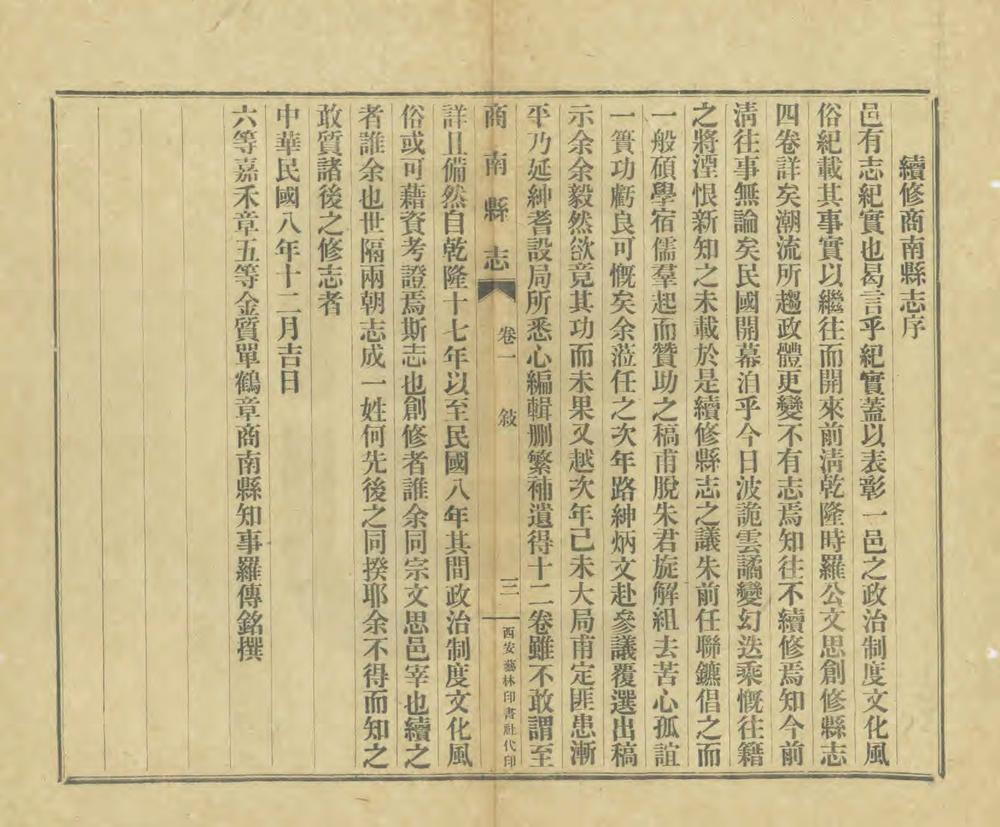 續修商南縣志序
邑有志紀實也曷言乎紀實蓋以表彰一邑之政治制度文化風
俗紀載其事實以繼往而開來前淸乾隆時羅公文思創修縣志
四卷詳矣潮流所趨政體更變不有志焉知往不續修焉知今前
淸往事無論矣民國開幕洎乎今日波詭雲譎變幻迭乘慨往籍
之將湮恨新知之未載於是續修縣志之議朱前任聯鑣倡之而
一般碩學宿儒羣起而贊助之稿甫脫朱君旋解組去苦心孤誼
一簣功虧良可慨矣余蒞任之次年路紳炳文赴參議覆選出稿
示余余毅然欲竟其功而未果又越次年己未大局甫定匪患漸
平乃延紳耆設局所悉心編輯刪繁補遺得十二卷雖不敢謂至
商南縣志 卷一 敍 三 西安藝林印書社代印
詳且備然自乾隆十七年以至民國八年其間政治制度文化風
俗或可藉資考證焉斯志也創修者誰余同宗文思邑宰也續之
者誰余也世隔兩朝志成一姓何先後之同揆耶余不得而知之
敢質諸後之修志者
中華民國八年十二月吉日
六等嘉禾章五等金質單鶴章商南縣知事羅傳銘撰